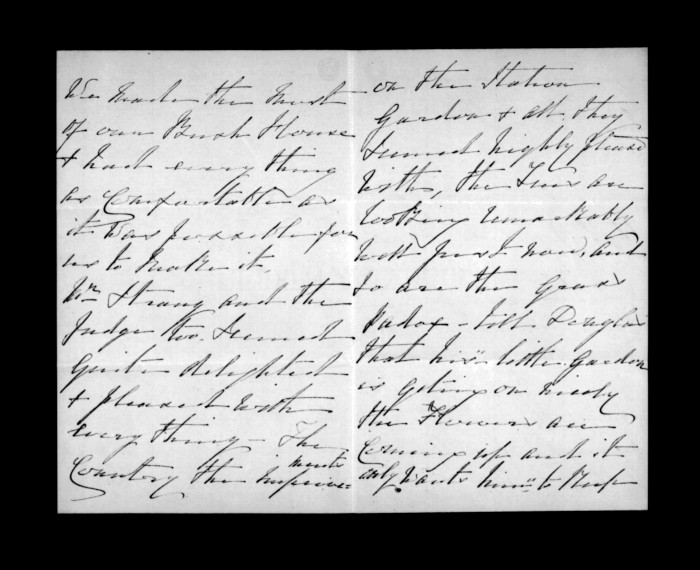 We made the most
of our Bush House
& had every thing
as Comfortable as
it was possible for
us to make it
Wm Strang and the
Judge too. Seemed
quite delighted
& pleased with
every thing - The
Country the improve=
ments
on the Station
Garden & all they
seemed highly pleased
with, the Trees are
looking remarkably
well just now, and
so are the Grass
Padox - tell Douglas
that his little Garden
is geting on nicely
the Flowers are
Coming up and it
only wants him to keep